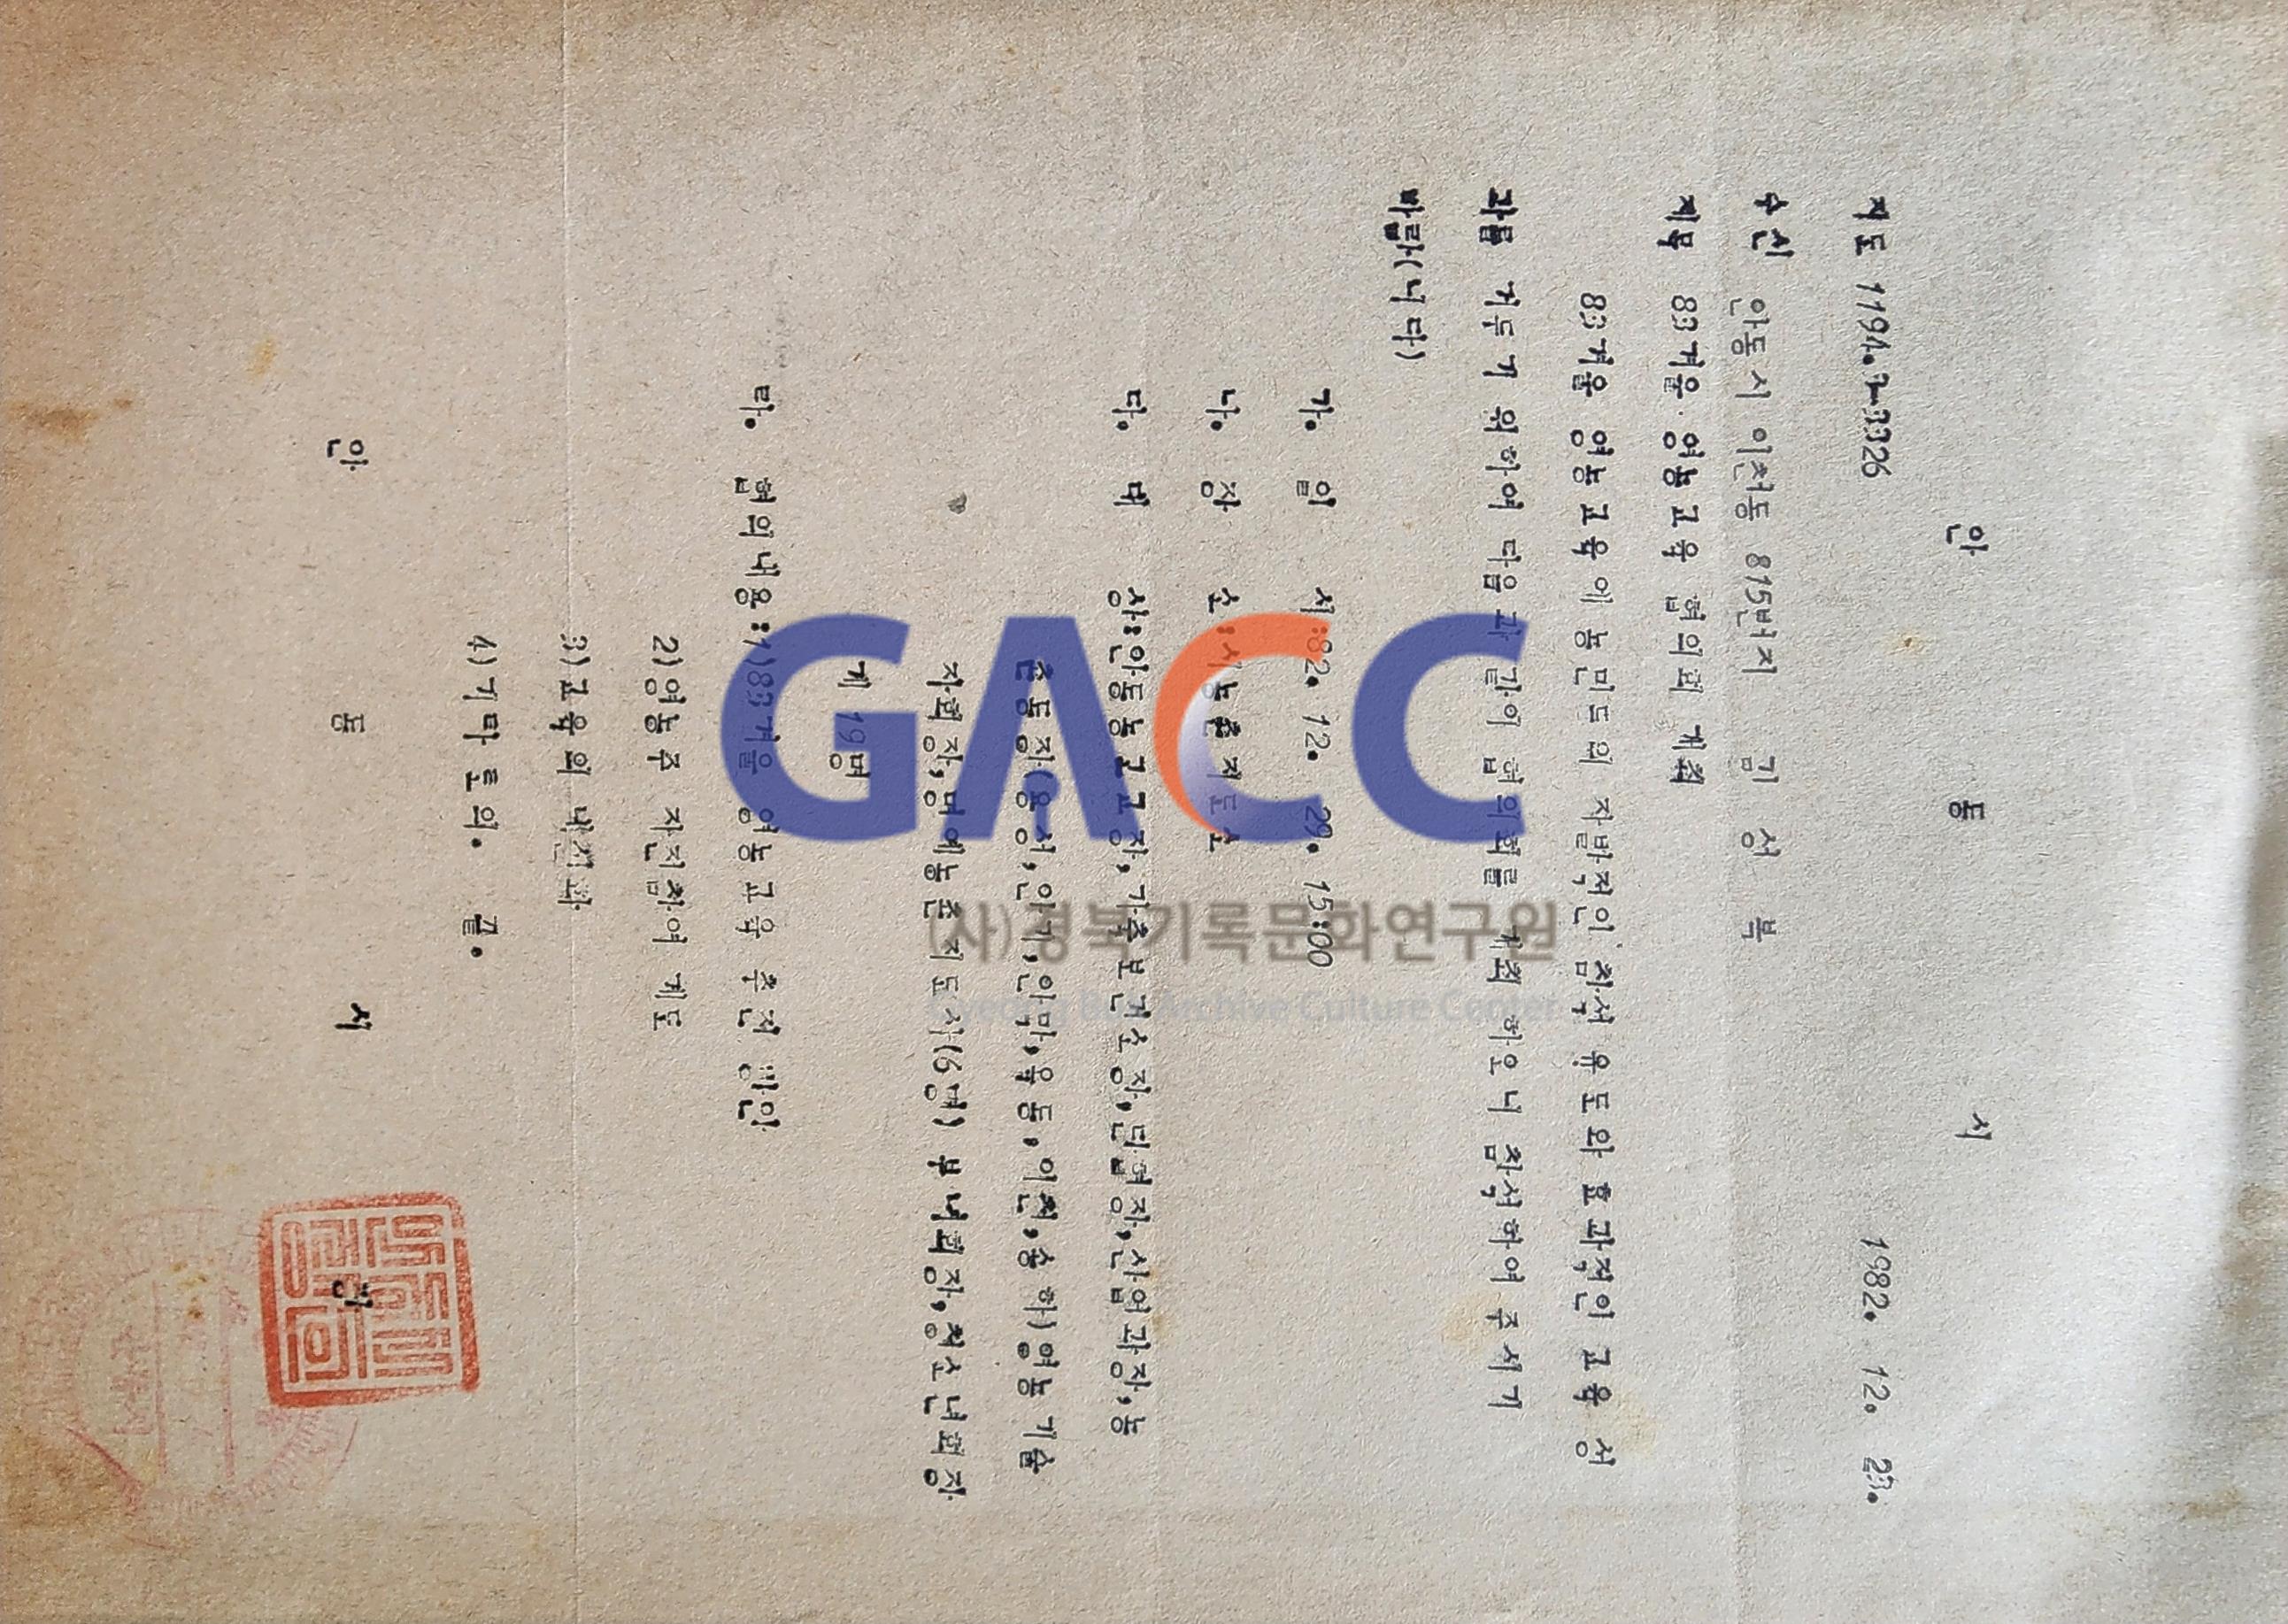 안 동 시
지도 1194.2-3326 1982. 12. 23.
수신 안동시 이천동 815번지 김 성 복
제목 83겨울 영농교육 협의회 개최
83겨울 영농교육에 농민들의 자발적인 참석 유도와 효과적인 교육 성
과를 거두기 위하여 다음과 같이 협의회를 개최 하오니 참석하여 주시기
바람(니다)
가. 일 시:82. 12. 29. 15:00
나. 장 소:시농촌지도소
다. 대 상:안동농고교장,가축보건소장,단협장,산업과장,농
촌동장(용상,안기,안막,옥동,이천,송하)영농기술
자회장,명예농촌지도사(6명) 부녀회장,청소년회장
계 19명
라. 협의내용:1)83겨울 영농교육 추진 방안
2)영농주 자진참여 계도
3)교육의 내실화
4)기타토의. 끝.
안 동 시 장
GACC
(사)경북기록문화연구원
Gyeong Buk Archive Culture Center